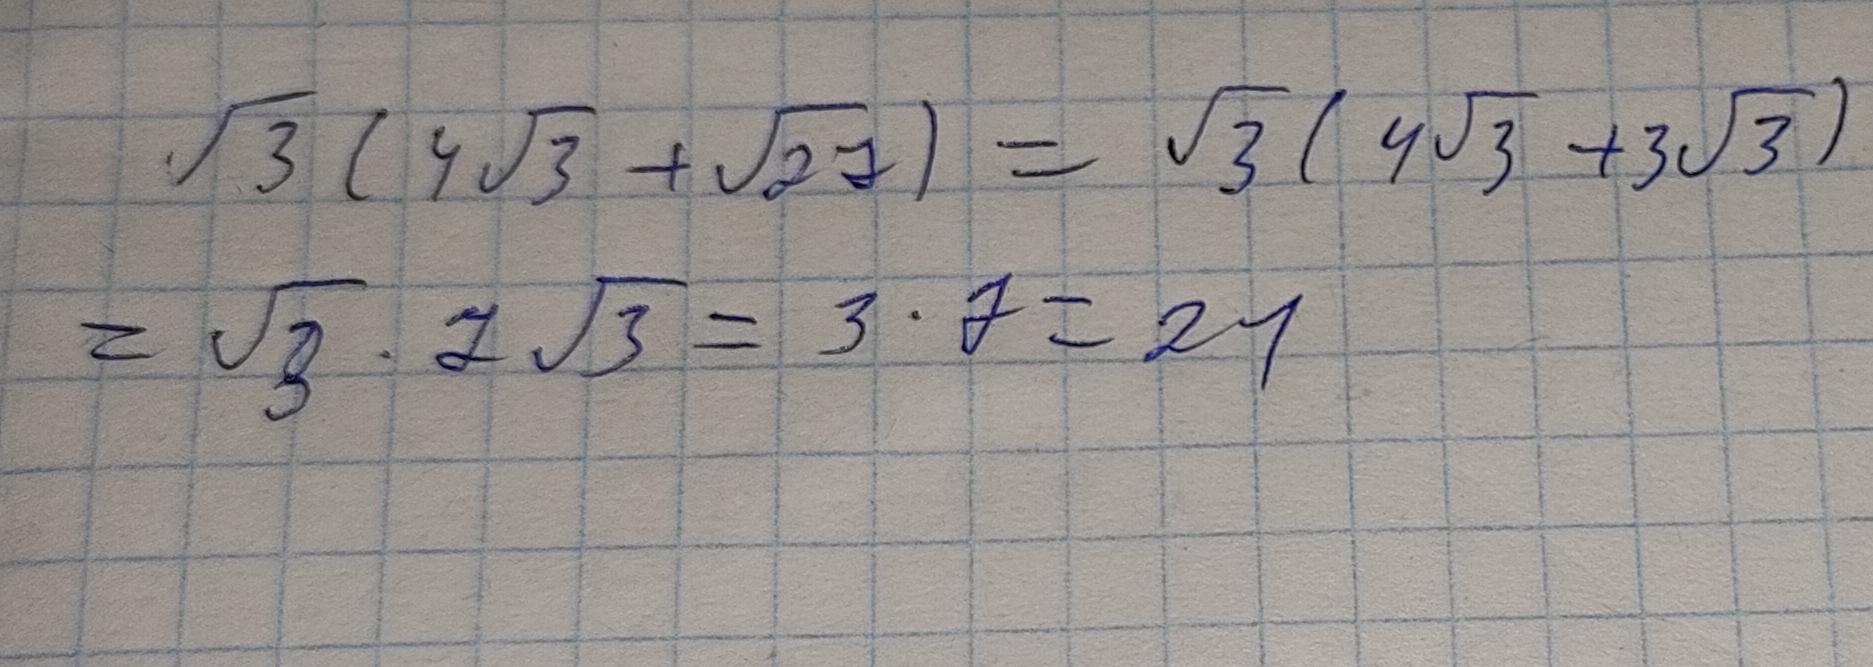 √3(4√3+√27)=√3(4√3+3√3)
=√3·7√3=3·7=21